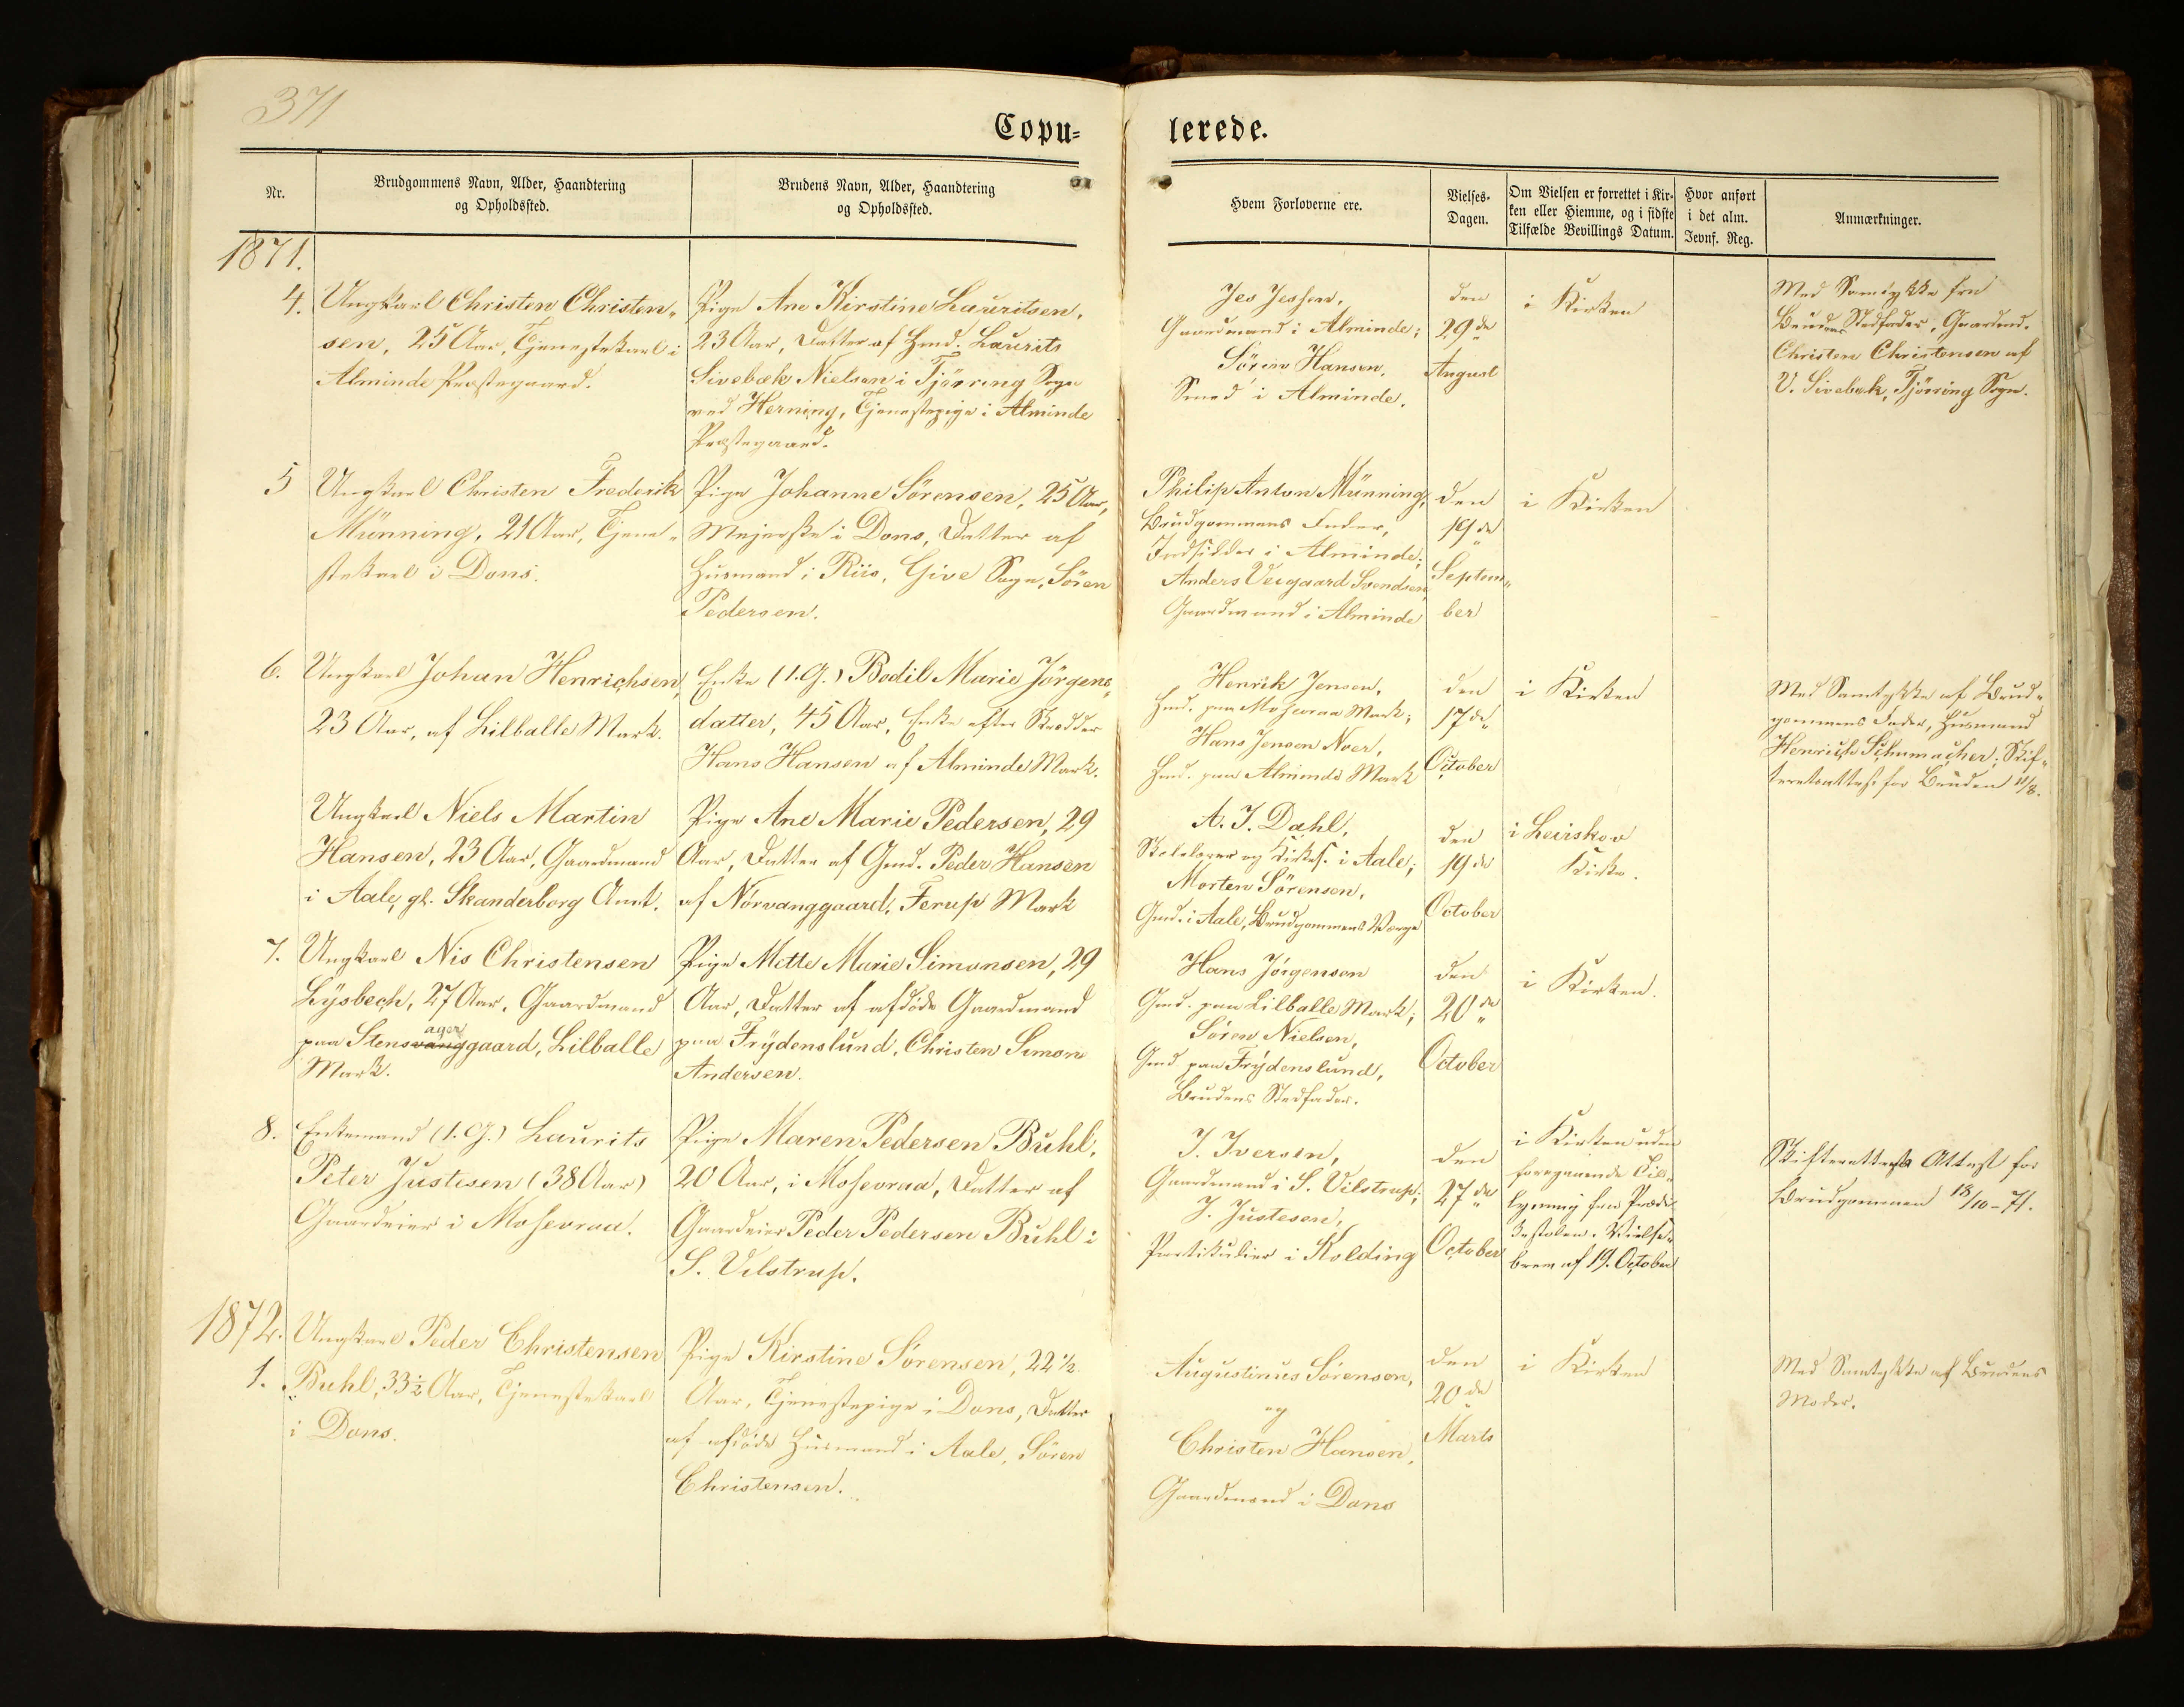 371
Copu-
lerede.
Nr.
Brudgommens Navn, Alder, Haandtering
og Opholdssted.
Brudens Navn, Alder, Haandtering
og Opholdssted.
Hvem Forloverne ere.
Vielses-
Dagen.
Om Vielsen er forrettet i Kir-
ken eller Hiemme, og i sidste
Tilfælde Bevillings Datum.
Hvor anført
i det alm.
Jevnf. Reg.
Anmærkninger.
1871.
4.
Ungkarl Christen Christen-
sen, 25 Aar, Tjenestekarl i
Alminde Præstegaard.
Pige Ane Kirstine Lauritsen,
23 Aar, Datter af Hmd. Laurits
Sivebæk Nielsen i Tjörring Sogn
ved Herning, Tjenestepige i Alminde
Præstegaard.
Jes Jessen,
Gaardmand i Alminde;
Sören Hansen,
Smed i Alminde.
den
29de
August
i Kirken
Med Samtykke fra
Brudens Stedfader, Gaardmd.
Christen Christensen af
V. Sivebæk, Tjörring Sogn.
5
Ungkarl Christen Frederik
Münning, 21 Aar, Tjene-
stekarl i Dons.
Pige Johanne Sörensen, 25 Aar,
Mejerske i Dons, Datter af
Husmand i Riis, Give Sogn, Sören
Pedersen.
Philip Anton Münning,
Brudgommens Fader,
Indsidder i Alminde;
Anders Veigaard Svendsen
Gaardmand i Alminde
den
19de
Septem-
ber
i Kirken
6.
Ungkarl Johan Henrichsen,
23 Aar, af Lilballe Mark.
Enke (1. G.) Bodil Marie Jörgens-
datter, 45 Aar, Enke efter Skrædder
Hans Hansen af Alminde Mark.
Henrik Jensen,
Hmd. paa Mosevraa Mark;
Hans Jensen Noer,
Hmd. paa Alminde Mark
den
17de
October
i Kirken
Med Samtykke af Brud-
gommens Fader, Husmand
Henrich Schumacher; Skif-
teretsattest for Bruden 11/8.
Ungkarl Niels Martin
Hansen, 23 Aar, Gaardmand
i Aale, gl. Skanderborg Amt.
Pige Ane Marie Pedersen, 29
Aar, Datter af Gmd. Peder Hansen
af Nörvanggaard, Ferup Mark
A. J. Dahl,
Skolelærer og Kirkes. i Aale;
Morten Sörensen,
Gmd. i Aale, Brudgommens Værge
den
19de
October
i Leirskov
Kirke.
7.
Ungkarl Nis Christensen
Lysbech, 27 Aar, Gaardmand
ager
paa Stensvanggaard, Lilballe
Mark.
Pige Mette Marie Simonsen, 29
Aar, Datter af afdöde Gaardmand
paa Frydenslund, Christen Simon
Andersen.
Hans Jörgensen
Gmd. paa Lilballe Mark;
Sören Nielsen,
Gmd. paa Frydenslund,
Brudens Stedfader.
den
20de
October
i Kirken.
8.
Enkemand (1. G.) Laurits
Peter Justesen (38 Aar)
Gaardeier i Mosevraa.
Pige Maren Pedersen Buhl,
20 Aar, i Mosevraa, Datter af
Gaardeier Peder Pedersen Buhl i
S. Vilstrup.
J. Iversen,
Gaardmand i S. Vilstrup;
J. Justesen,
Partikulier i Kolding
den
27de
October
i Kirken uden
foregaaende Til-
lysning fra Prædi-
kestolen. Vielse-
brev af 19. October
Skifterettens Attest for
Brudgommen 18/10-71.
1872.
1.
Ungkarl Peder Christensen
Buhl, 33½ Aar, Tjenestekarl
i Dons.
Pige Kirstine Sörensen, 22½
Aar, Tjenestepige i Dons, Datter
af afdöde Husmand i Aale, Sören
Christensen.
Augustinus Sörensen,
og
Christen Hansen,
Gaardmænd i Dons
den
20de
Marts
i Kirken
Med Samtykke af Brudens
Moder.